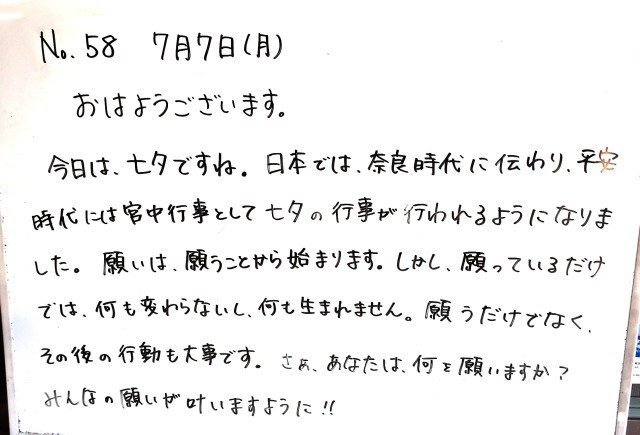 No.58 7月7日(月)
おはようございます。
今日は、七夕ですね。日本では、奈良時代に伝わり、平安
時代には宮中行事として七夕の行事が行われるようになりま
した。願いは、願うことから始まります。しかし、願っているだけ
では、何も変わらないし、何も生まれません。願うだけでなく、
その後の行動も大事です。さぁ、あなたは、何を願いますか?
みんなの願いが叶いますように!!